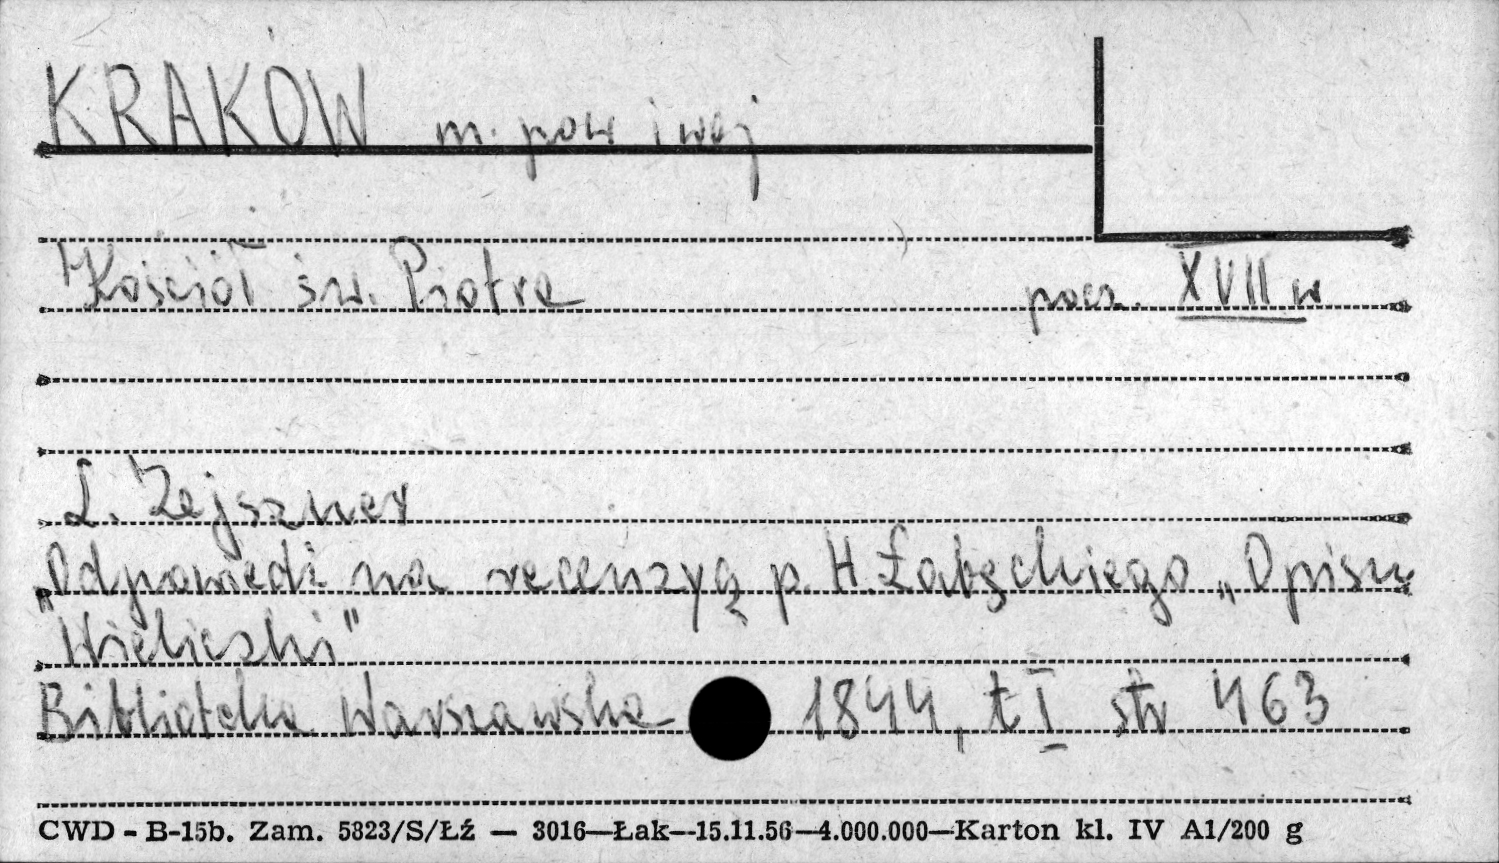 KRAKOW m. pow i woj
Kościół św. Piotra pocz. XVII w
L. Zejszner
„Odpowiedź na recenzyą p. H. Łabęckiego „Opisu
Wieliczki"
Biblioteka Warszawska 1844, t I str 463
CWD - B-15b. Zam. 5823/S/Łź — 3016—Łak—15.11.56—4.000.000—Karton kl. IV A1/200 g